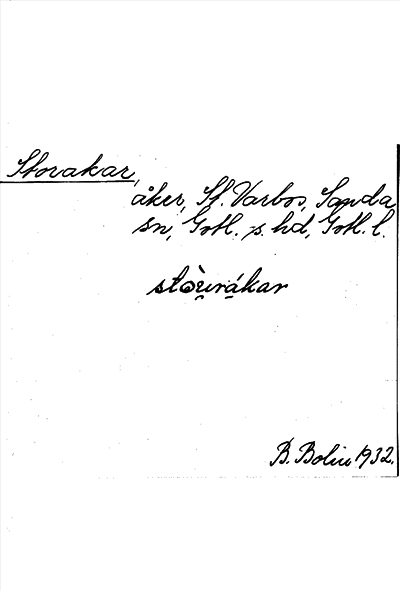 Storakar,
åker, St. Varbos, Sanda
sn, Gotl. s. hd, Gotl. l.
stòu̯rákar
B. Bolin 1932.